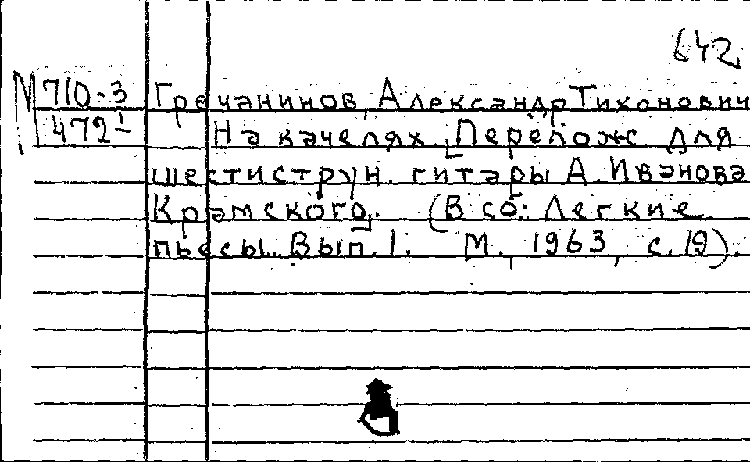 642
М 710-3 Гречанинов, Александр Тихонович
472 I На качелях. [Перелож. для
шестиструн. гитары А. Иванова-
Крамского]. (В сб.: Легкие
пьесы. Вып. 1. М., 1963, с. 19).